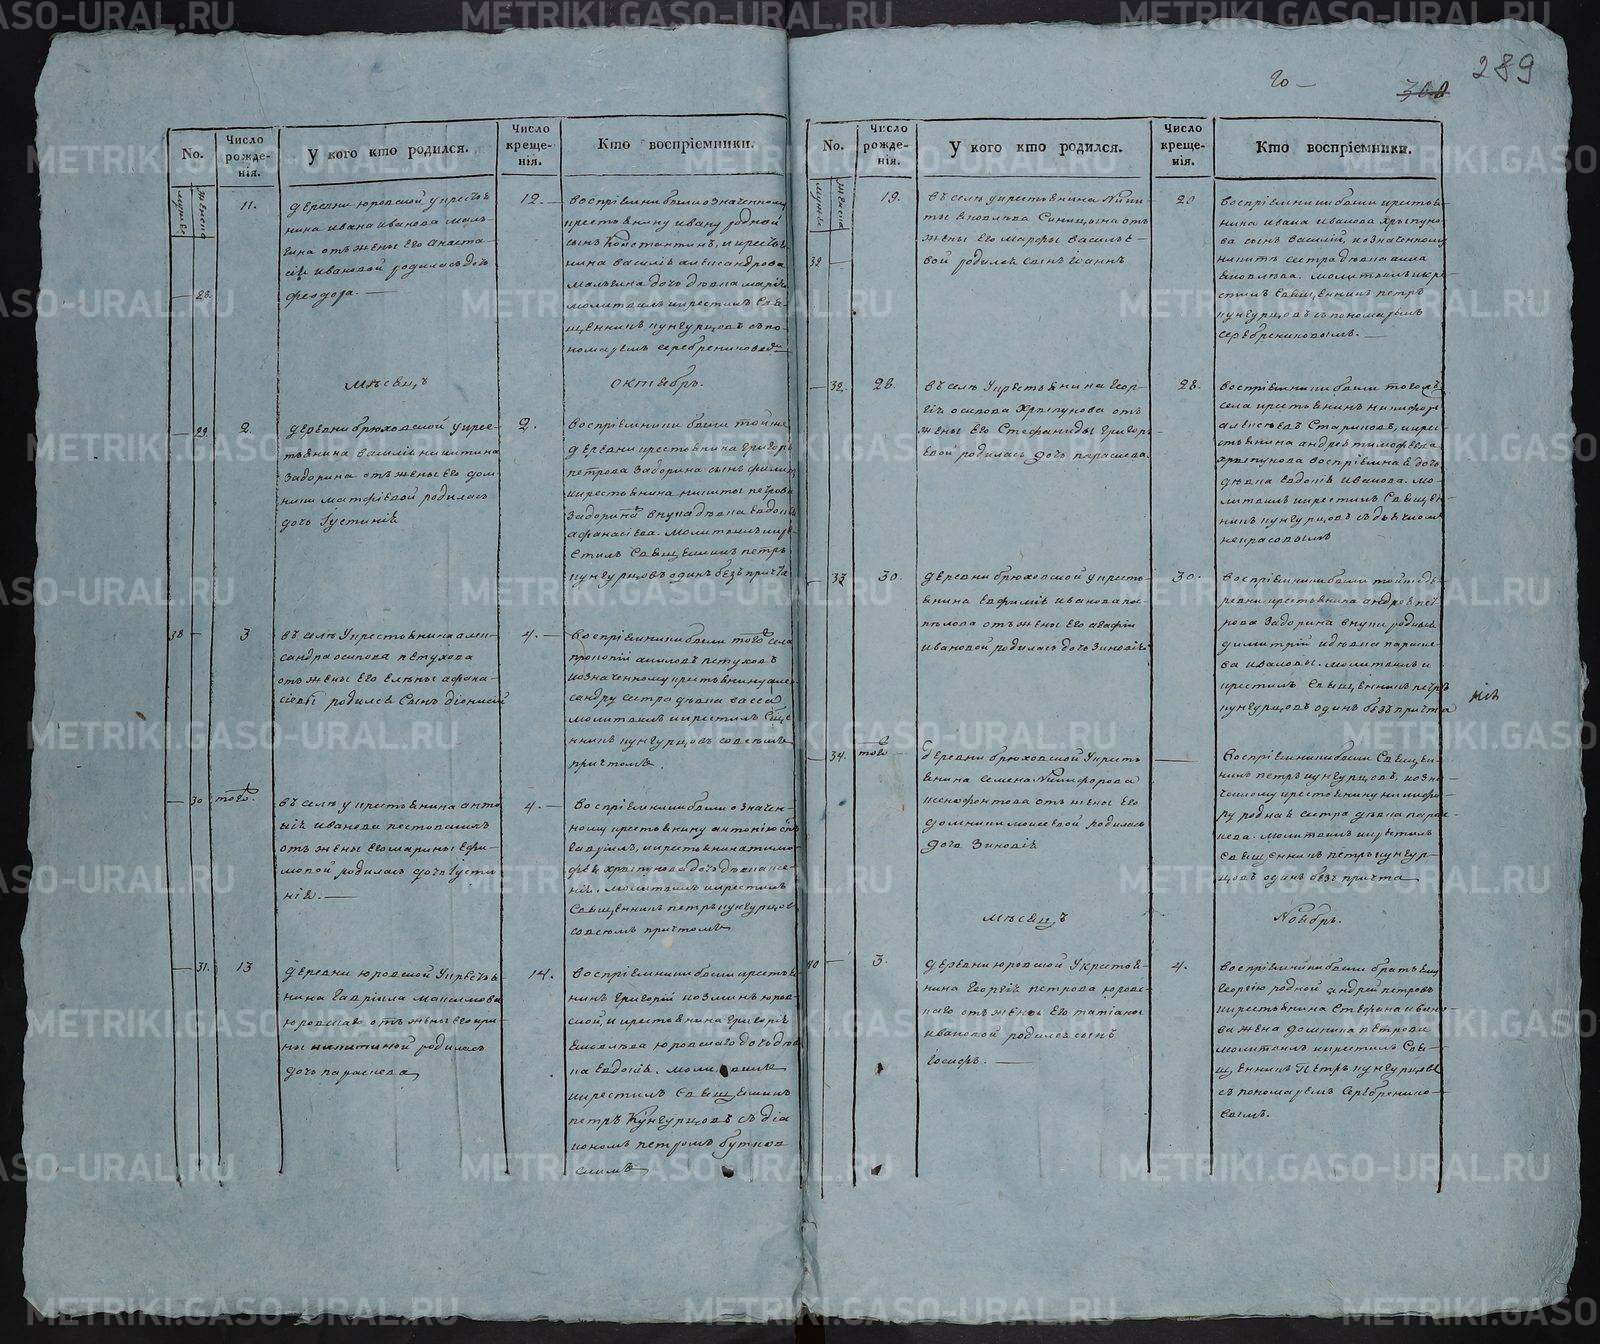 289
300
20
No.
Число рожде-нія.
У кого кто родился.
Число креще-нія.
Кто воспріемники.
мужск
женска
11.
деревни юровской у кресть
янина ивана иванова маль
гина отъ жены его анаста
сіи ивановой родилась дочь
феодора.
12.
воспріемники были означенному
крестьянину ивану родной
сынъ Константинъ, и кресть
янина василія александрова
мальгина дочь девка марія
молитвилъ и крестилъ свя-
щенникъ кунгурцовъ съ по-
номаремъ серебрениковымъ
28.
мѣсецъ
октябрь.
29.
2.
деревни брюховской у крес-
тьянина василія никитина
Задорина отъ жены его дом-
ники матфіевой родилась
дочь Іустинія
2.
воспріемники были той же
деревни крестьянина григорья
петрова Задорина сынъ филипъ
и крестьянина никиты петрова
Задорина внука девка евдокія
афанасіева. молитвилъ и кре
стилъ священникъ петръ
кунгурцовъ одинъ безъ причта
38
3
въ селѣ у крестьянина алек-
сандра осипова петухова
отъ жены его елены афана-
сіевы родился сынъ діонисій
4.
воспріемники были того села
прокопій петуховъ
и означенному крестьянину алек
сандру сестра девка васса
молитвилъ и крестилъ свяще
нникъ кунгурцовъ со всемъ
причтомъ.
30
того.
въ селѣ у крестьянина анто
нія иванова
отъ жены его марины ефи-
мовой родилась дочь Іусти
нія.
4.
воспріемники были означен-
ному крестьянину антонію сынъ
гавріилъ, и крестьянина тимо-
фея хрыпунова дочь девка ксе-
нія. молитвилъ и крестилъ
священникъ петръ кунгурцовъ
со всемъ причтомъ
31.
13
деревни юровской у кресть
янина гавріила максимова
юровскаго отъ жены его ири-
ны никитиной родилась
дочь параскева
14.
воспріемники были крестья
нинъ григорій козминъ юров-
ской, и крестьянина григорія
яковлева юровскаго дочь дев
ка евдокія. молитвилъ
и крестилъ священникъ
петръ кунгурцовъ съ діа
кономъ петромъ
скимъ
No.
Число рожде-нія.
У кого кто родился.
Число креще-нія.
Кто воспріемники.
мужск
женска
39
19.
въ селѣ у крестьянина Ники-
ты яковлева Синицына отъ
жены его марфы василье-
вой родился сынъ іоаннъ
20
воспріемники были крестья-
нина ивана иванова хрыпуно-
ва сынъ василій, и означенному
никитѣ сестра девка анна
яковлева. молитвилъ и кре
стилъ священникъ петръ
кунгурцовъ съ пономаремъ
серебрениковымъ.
32.
28.
въ селѣ у крестьянина геор-
гія осипова хрыпунова отъ
жены его Стефаниды григорь
евой родилась дочь параскева.
28.
воспріемники были того жъ
села крестьянинъ никифоръ
алексѣевъ Стариковъ, и крес-
тьянина андрея тимофеева
хрыпунова воспріемная дочь
девка евдокія иванова. мо-
литвилъ и крестилъ священ
никъ кунгурцовъ съ дьячкомъ
некрасовымъ
33
30.
деревни брюховской у кресть
янина евфимія иванова по-
пелова отъ жены его агафіи
ивановой родилась дочь зиновія.
30.
воспріемники были той же де-
ревни крестьянина андрея пет
рова Задорина внуки родный
димитрій и девка параске
ва ивановы. молитвилъ и
крестилъ священникъ петръ
кунгурцовъ одинъ безъ причта
34.
того
деревни брюховской у кресть
янина семена Никифорова
ксенофонтова отъ жены его
домники моисеевой родилась
дочь Зиновія
воспріемники были священ-
никъ петръ кунгурцовъ, и озна-
ченному крестьянину никифо-
ру родная сестра девка парас-
кева. молитвилъ и крестилъ
священникъ петръ кунгур-
цовъ одинъ безъ причта
мѣсецъ
Ноябрь.
40
3.
деревни юровской у крестья-
нина георгія петрова юровс-
каго отъ жены его татіаны
ивановой родился сынъ
іосифъ.
4.
воспріемники были братъ ему
георгію родной андрей петровъ
и крестьянина Стефана
ва жена домника петрова
молитвилъ и крестилъ свя-
щенникъ петръ кунгурцовъ
съ пономаремъ серебренико-
вымъ.